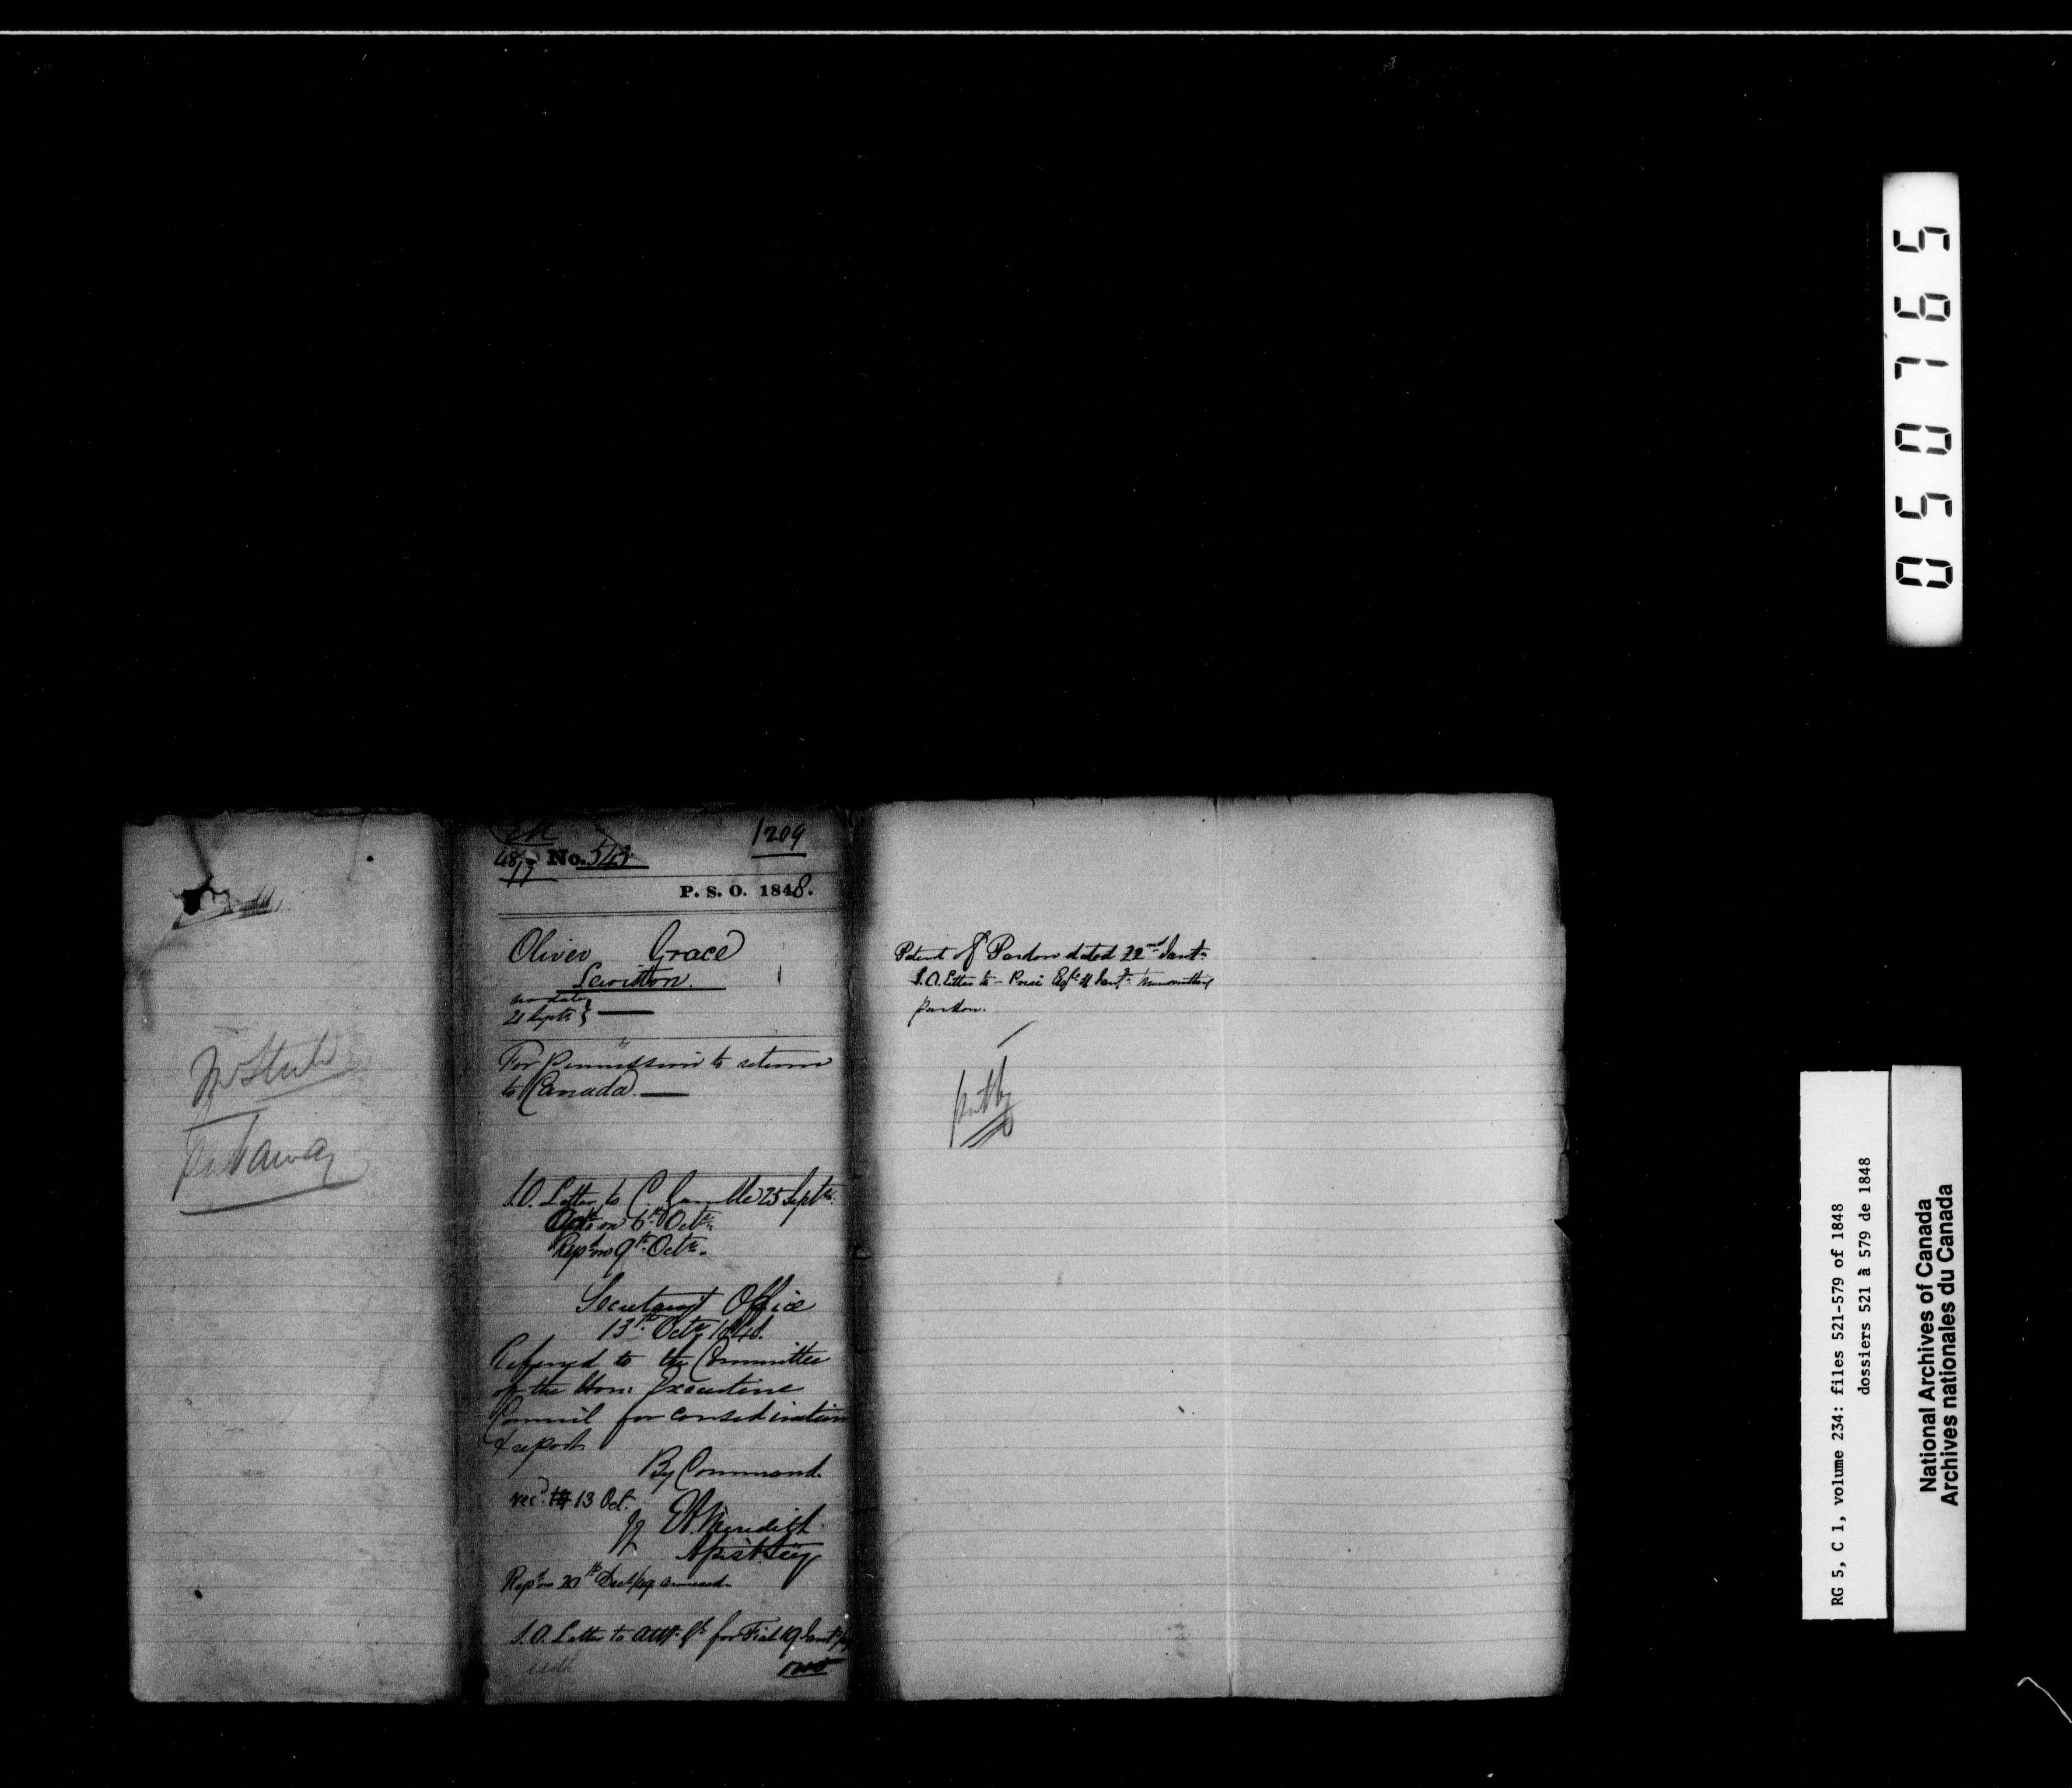 Put away
1209
48/17 No. 543
P. S. O. 1848.
Oliver Grace
Lewiston.
no date
21 Septr
For permission to return
to Canada.
S.O. Letter to C. Gamble 25 Septr.
on 6th Octr.
Rept on 9th Octr.
Secretary's Office
13th Octr 1848.
Referred to the Committee
of the Hon: Executive
Council for consideration
& report
By Command
recd 13 Oct.
E A Meredith
Assist. Secy
Rept on 20th Decr/49 annexed.
S.O. Letter to Atty. Gl. for Fiat 19 Jany
over
Patent of Pardon dated 22nd Jany.
S.O. Letter to – Price Esqre Jany. transmitting
pardon.
put by
050765
RG 5, C 1, volume 234: files 521-579 of 1848
dossiers 521 à 579 de 1848
National Archives of Canada
Archives nationales du Canada